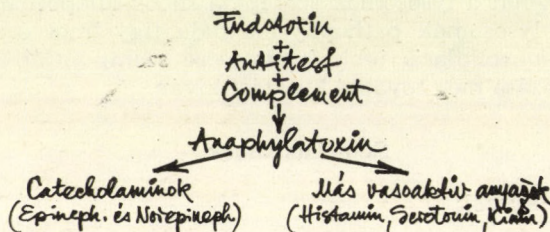 Endotoxin
+
Antitest
+
Complement
Anaphylatoxin
Catecholaminok
(Epineph. és Norepineph)
Más vasoaktiv anyagok
(Histamin, Serotonin, Kinin)